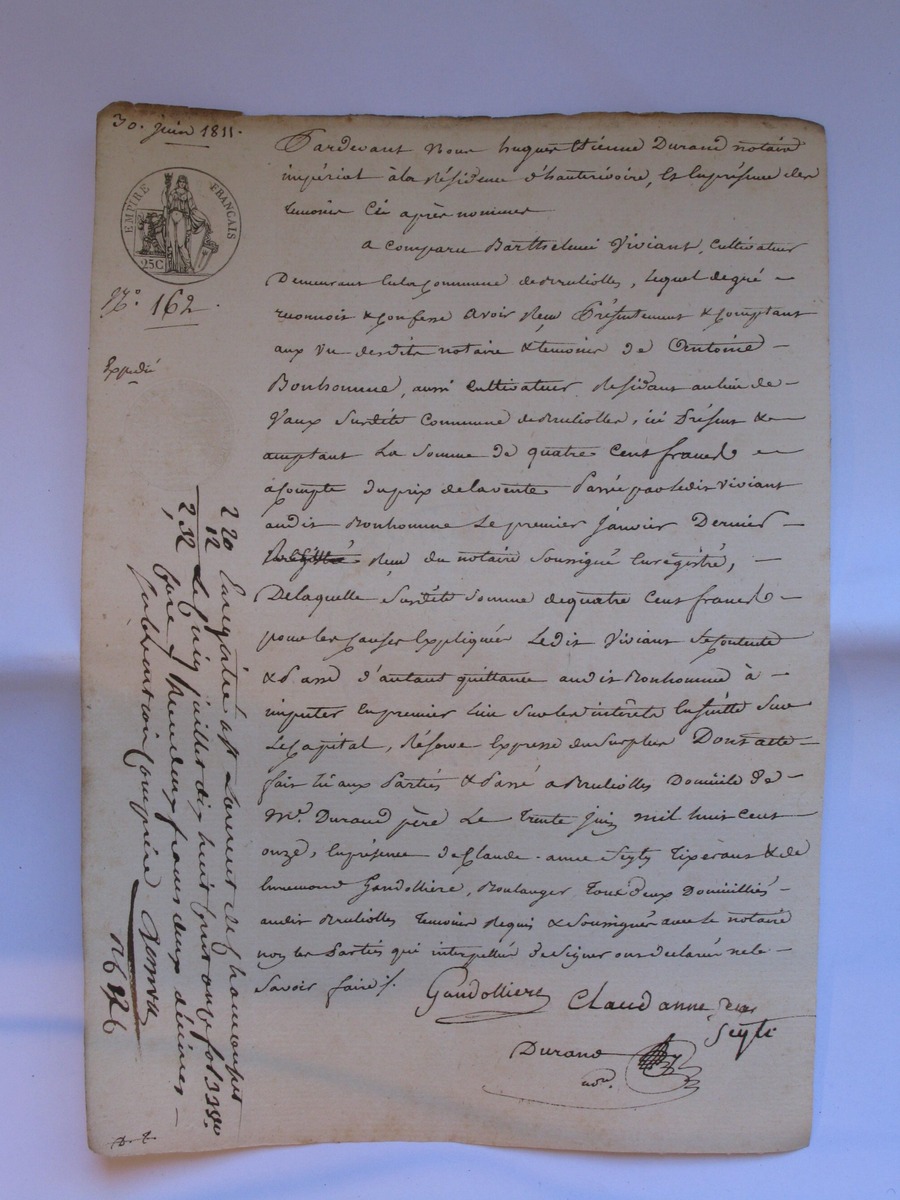 30. juin 1811.
EMPIRE FRANÇAIS
25C
N.º 162
Expédié
Pardevant Nous hugues Etienne Durand notaire
impérial à la Résidence d'hauterivoire, Et En présence des
temoins Ci après nommés
a comparu Barthelemi Viviant, Cultivateur
Demeurant En la Commune de Brulioles, lequel de gré -
reconnoit & Confesse avoir Reçu Présentement & Comptant
aux vu desdits notaire & temoins de Antoine -
Bonhomme, aussi Cultivateur Residant au lieu de -
Vaux Surdite Commune de Brulioles, ici Présent &
acceptant La Somme de quatre Cent francs -
acompte du prix de la vente Passée par ledit Viviant
audit Bonhomme Le premier Janvier Dernier -
Reçu du notaire Soussigné Enregistré, -
De laquelle Surdite Somme de quatre Cent francs -
pour les Causes Expliquées Ledit Viviant Se Contente
& Passe d'autant quittance audit Bonhomme à -
imputer En premier Lieu Sur les intérêts Ensuitte Sur
Le Capital, Réserve Expresse du Surplus Dont acte -
fait Lu aux Parties & Passé a Brulioles Domicile de -
Mr. Durand père Le trente Juin mil huit Cent
onze, En présence de Claude-anne Seyty Tixerant & de
Ennemond Gandolliere, Boulanger Tous deux Domiciliés -
audit Brulioles Temoins Requis & Soussignés avec le notaire
non les Parties qui interpellés de Signer ont déclaré ne le -
Savoir faire ./.
Gandolliere Claud anne
Seyti
Durand
nore.
2 20 Enregistré à St Laurent de Chamousset
12 Le juillet dix huit Cent onze fol 33
2,32 Case 7 Reçu deux francs deux décimes -
Subvention Comprise